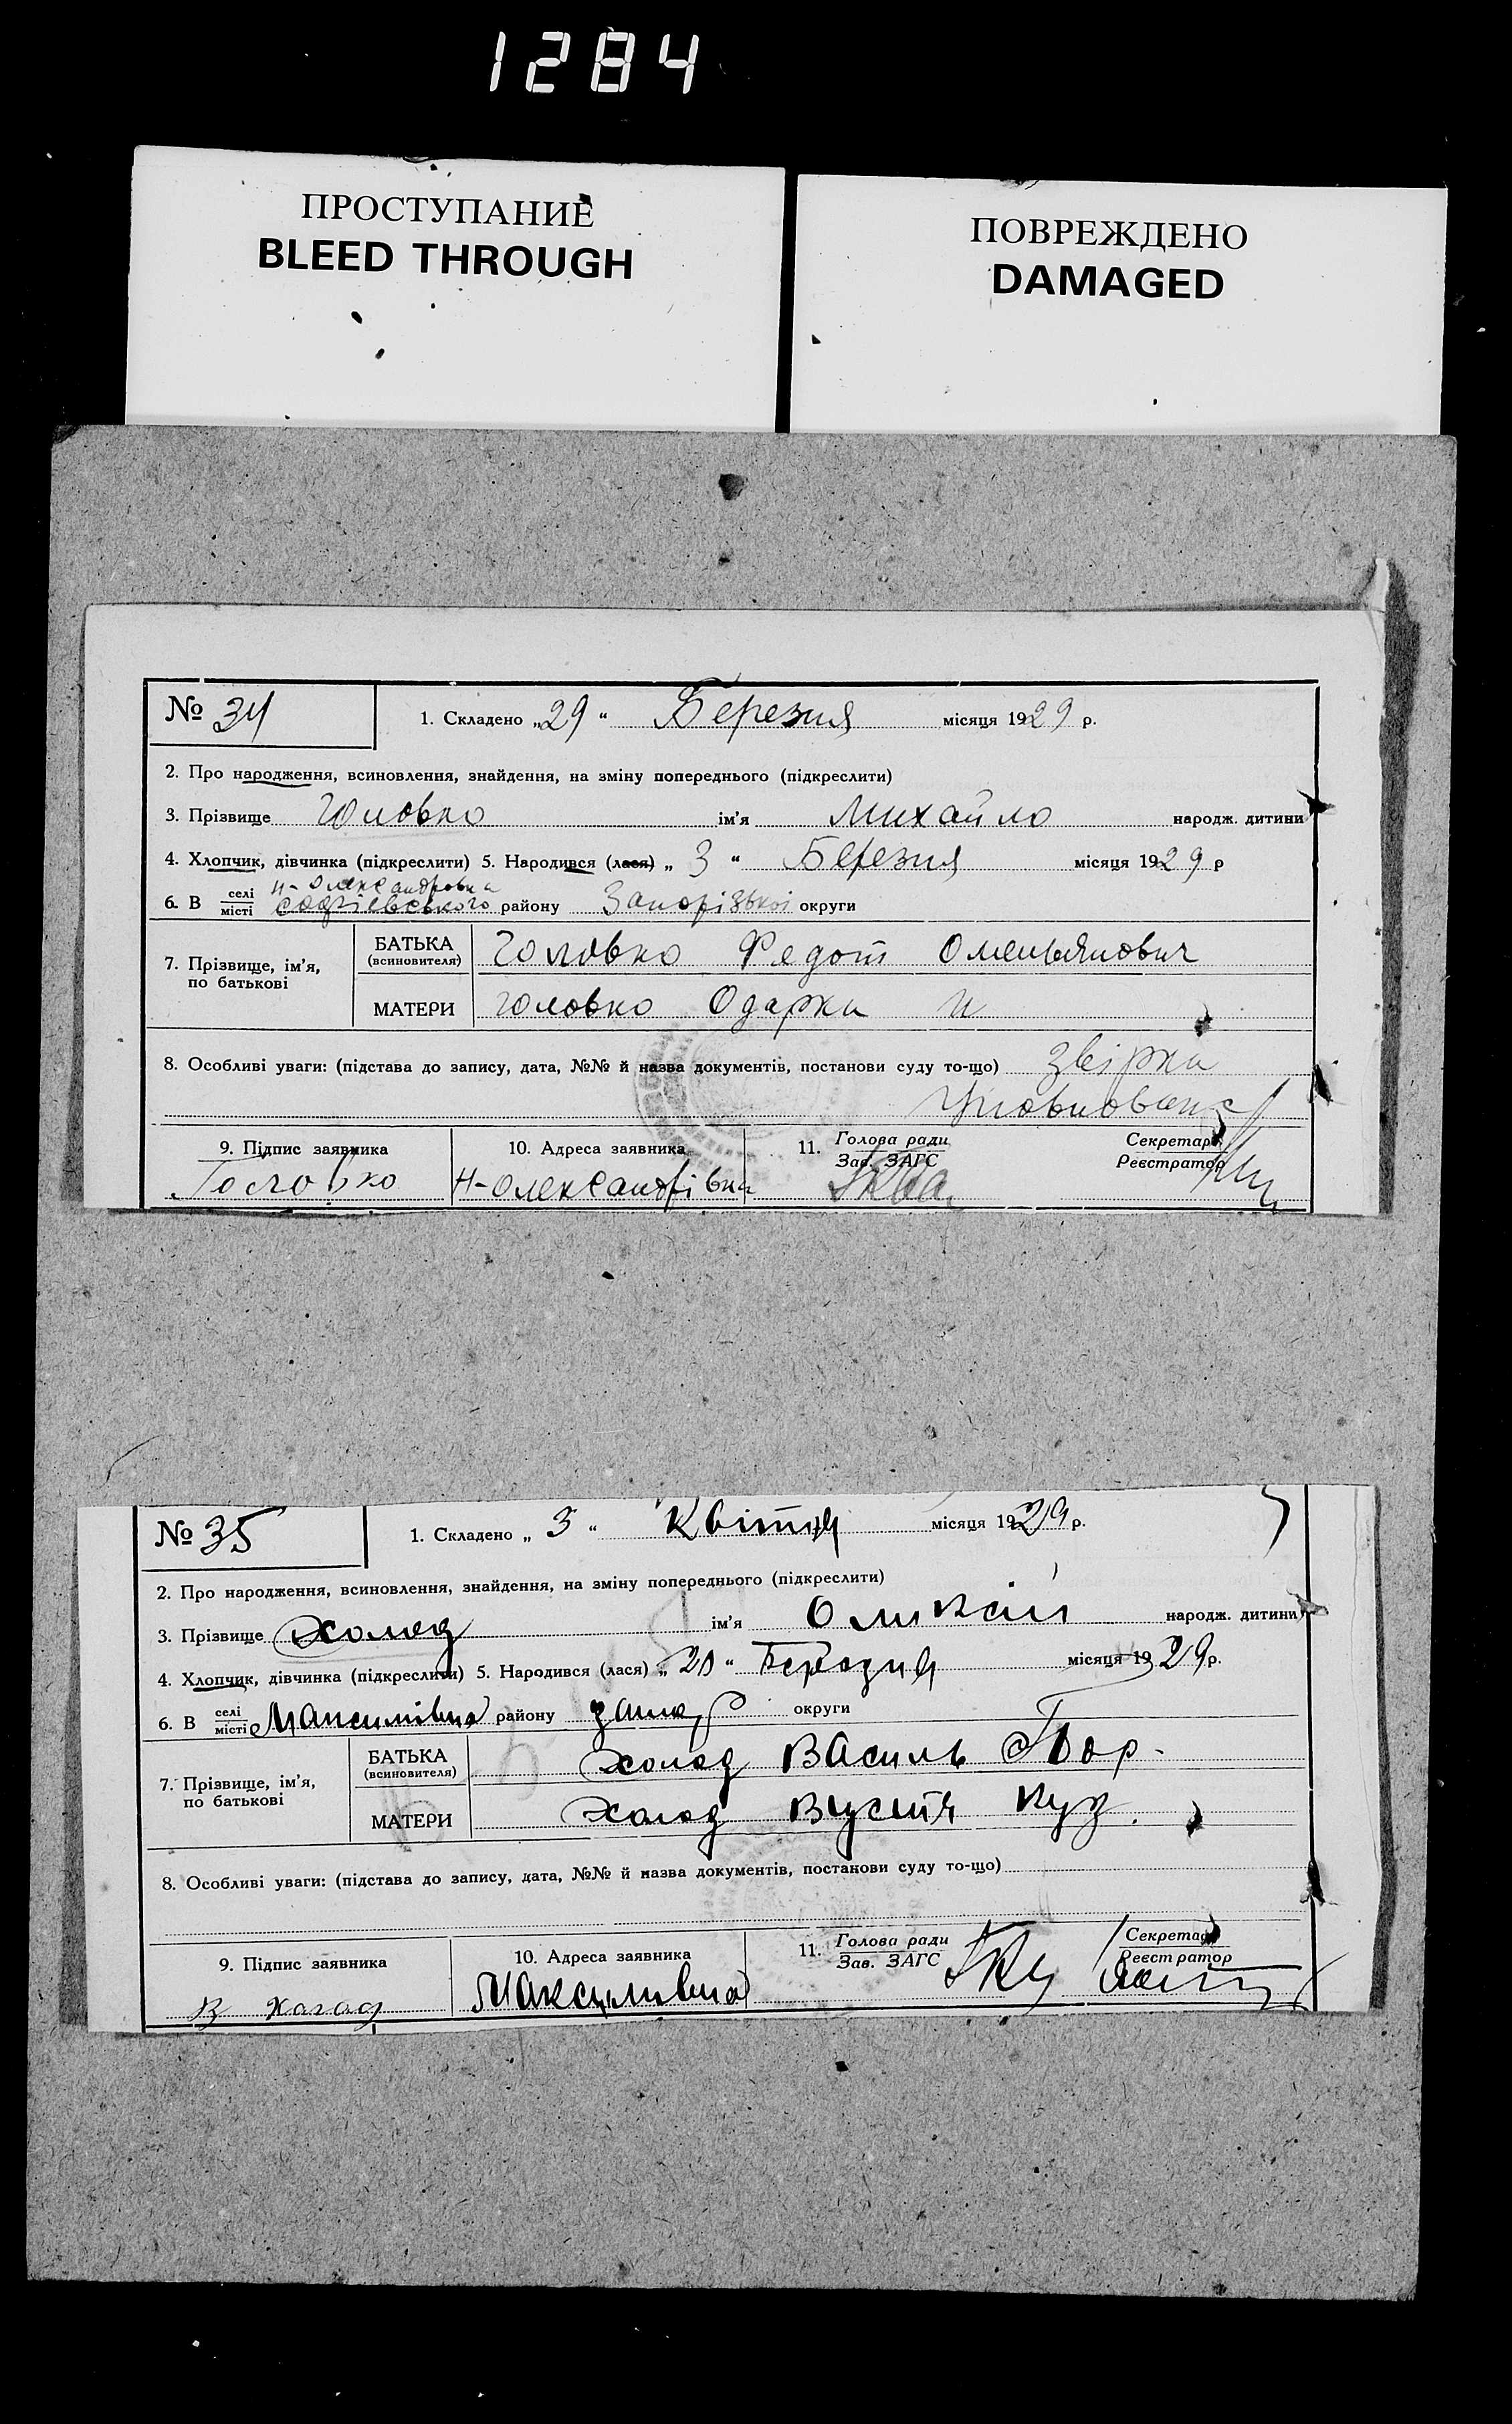 1284
ПРОСТУПАНИЕ
BLEED THROUGH
ПОВРЕЖДЕНО
DAMAGED
№ 34
1. Складено „29“ Березня місяця 1929 р.
2. Про народження, всиновлення, знайдення, на зміну попереднього (підкреслити)
3. Прізвище Головко ім'я Михайло народж. дитини
4. Хлопчик, дівчинка (підкреслити) 5. Народився (лася) „ 3 “ Березня місяця 1929 р
Н-Олександровка
6. В селі місті Софіевського району Запорізької округи
7. Прізвище, ім'я, по батькові
БАТЬКА (всиновителя) Головко Федот Омельянович
МАТЕРИ Головко Одарка И
8. Особливі уваги: (підстава до запису, дата, №№ й назва документів, постанови суду то-що) звірка
9. Підпис заявника
10. Адреса заявника
11. Голова ради Зав. ЗАГС
Секретар Реєстратор
Головко Н-Олександрівка
№ 35
1. Складено „ 3 “ Квітня місяця 1929 р.
2. Про народження, всиновлення, знайдення, на зміну попереднього (підкреслити)
3. Прізвище Холод ім'я народж. дитини
4. Хлопчик, дівчинка (підкреслити) 5. Народився (лася) „ 20 “ місяця 1929 р.
6. В селі місті Максимівка району запор округи
7. Прізвище, ім'я, по батькові
БАТЬКА (всиновителя) Холод Василь
МАТЕРИ Холод Куз.
8. Особливі уваги: (підстава до запису, дата, №№ й назва документів, постанови суду то-що)
9. Підпис заявника
10. Адреса заявника
11. Голова ради Зав. ЗАГС
Секретар Реєстратор
В Холод Максимівка